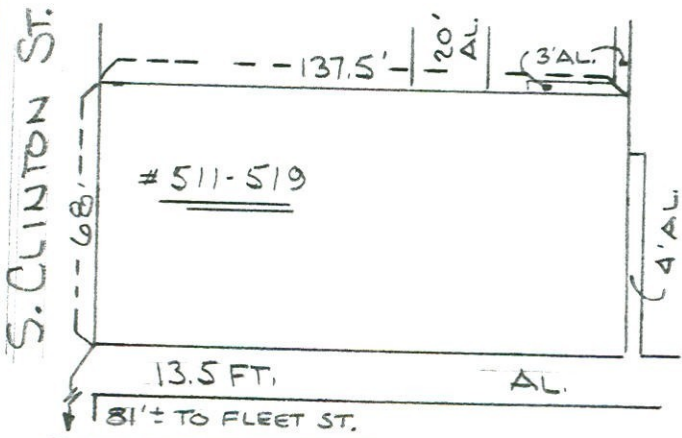 S. CLINTON ST.
137.5'
20' AL.
3' AL.
# 511-519
68'
4' AL.
13.5 FT. AL.
81'± TO FLEET ST.